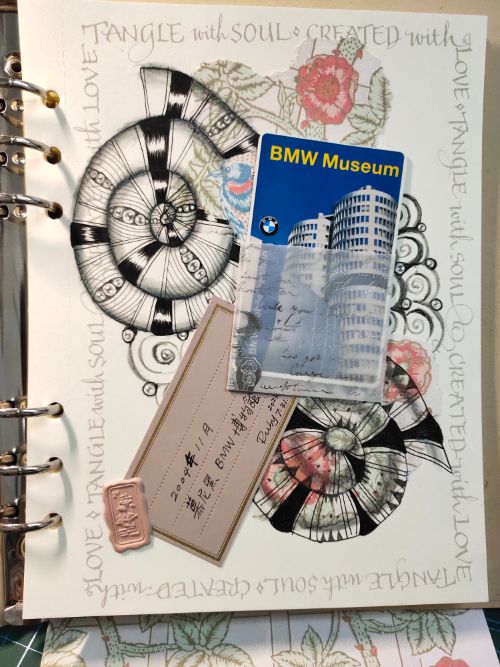 TANGLE with SOUL ⋄ CREATED with
LOVE ⋄ TANGLE with SOUL
CREATED with LOVE
TANGLE with SOUL ⋄ CREATED with
LOVE ⋄ TANGLE with SOUL
with LOVE
BMW Museum
BMW
2004年11月
慕尼黑 BMW博物馆
Ruby 7.31.